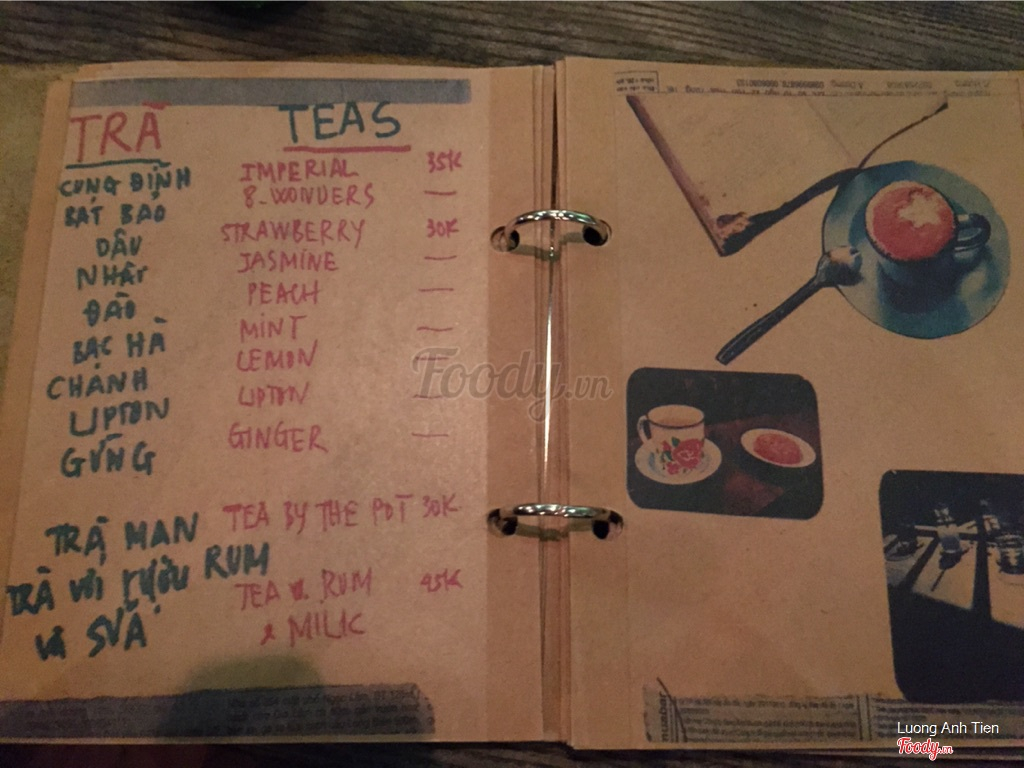 TRÀ TEAS
CUNG ĐỊNH IMPERIAL 35K
BÁT BẢO 8.WONDERS —
DÂU STRAWBERRY 30K
NHÀI JASMINE —
ĐÀO PEACH —
BẠC HÀ MINT —
CHANH LEMON —
LIPTON LIPTON —
GỪNG GINGER —
TRÀ MAN TEA BY THE POT 30K
TRÀ VỚI RƯỢU RUM TEA & RUM 45K
VÀ SỮA & MILK
Foody.vn
Luong Anh Tien
Foody.vn